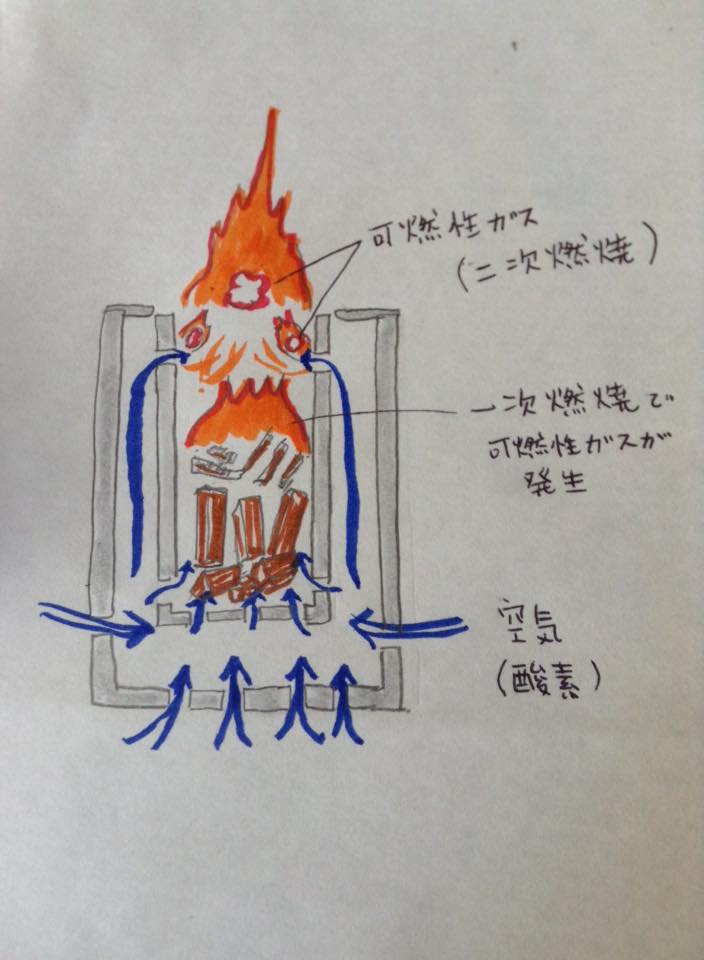 可燃性ガス
(二次燃焼)
一次燃焼で
可燃性ガスが
発生
空気
(酸素)